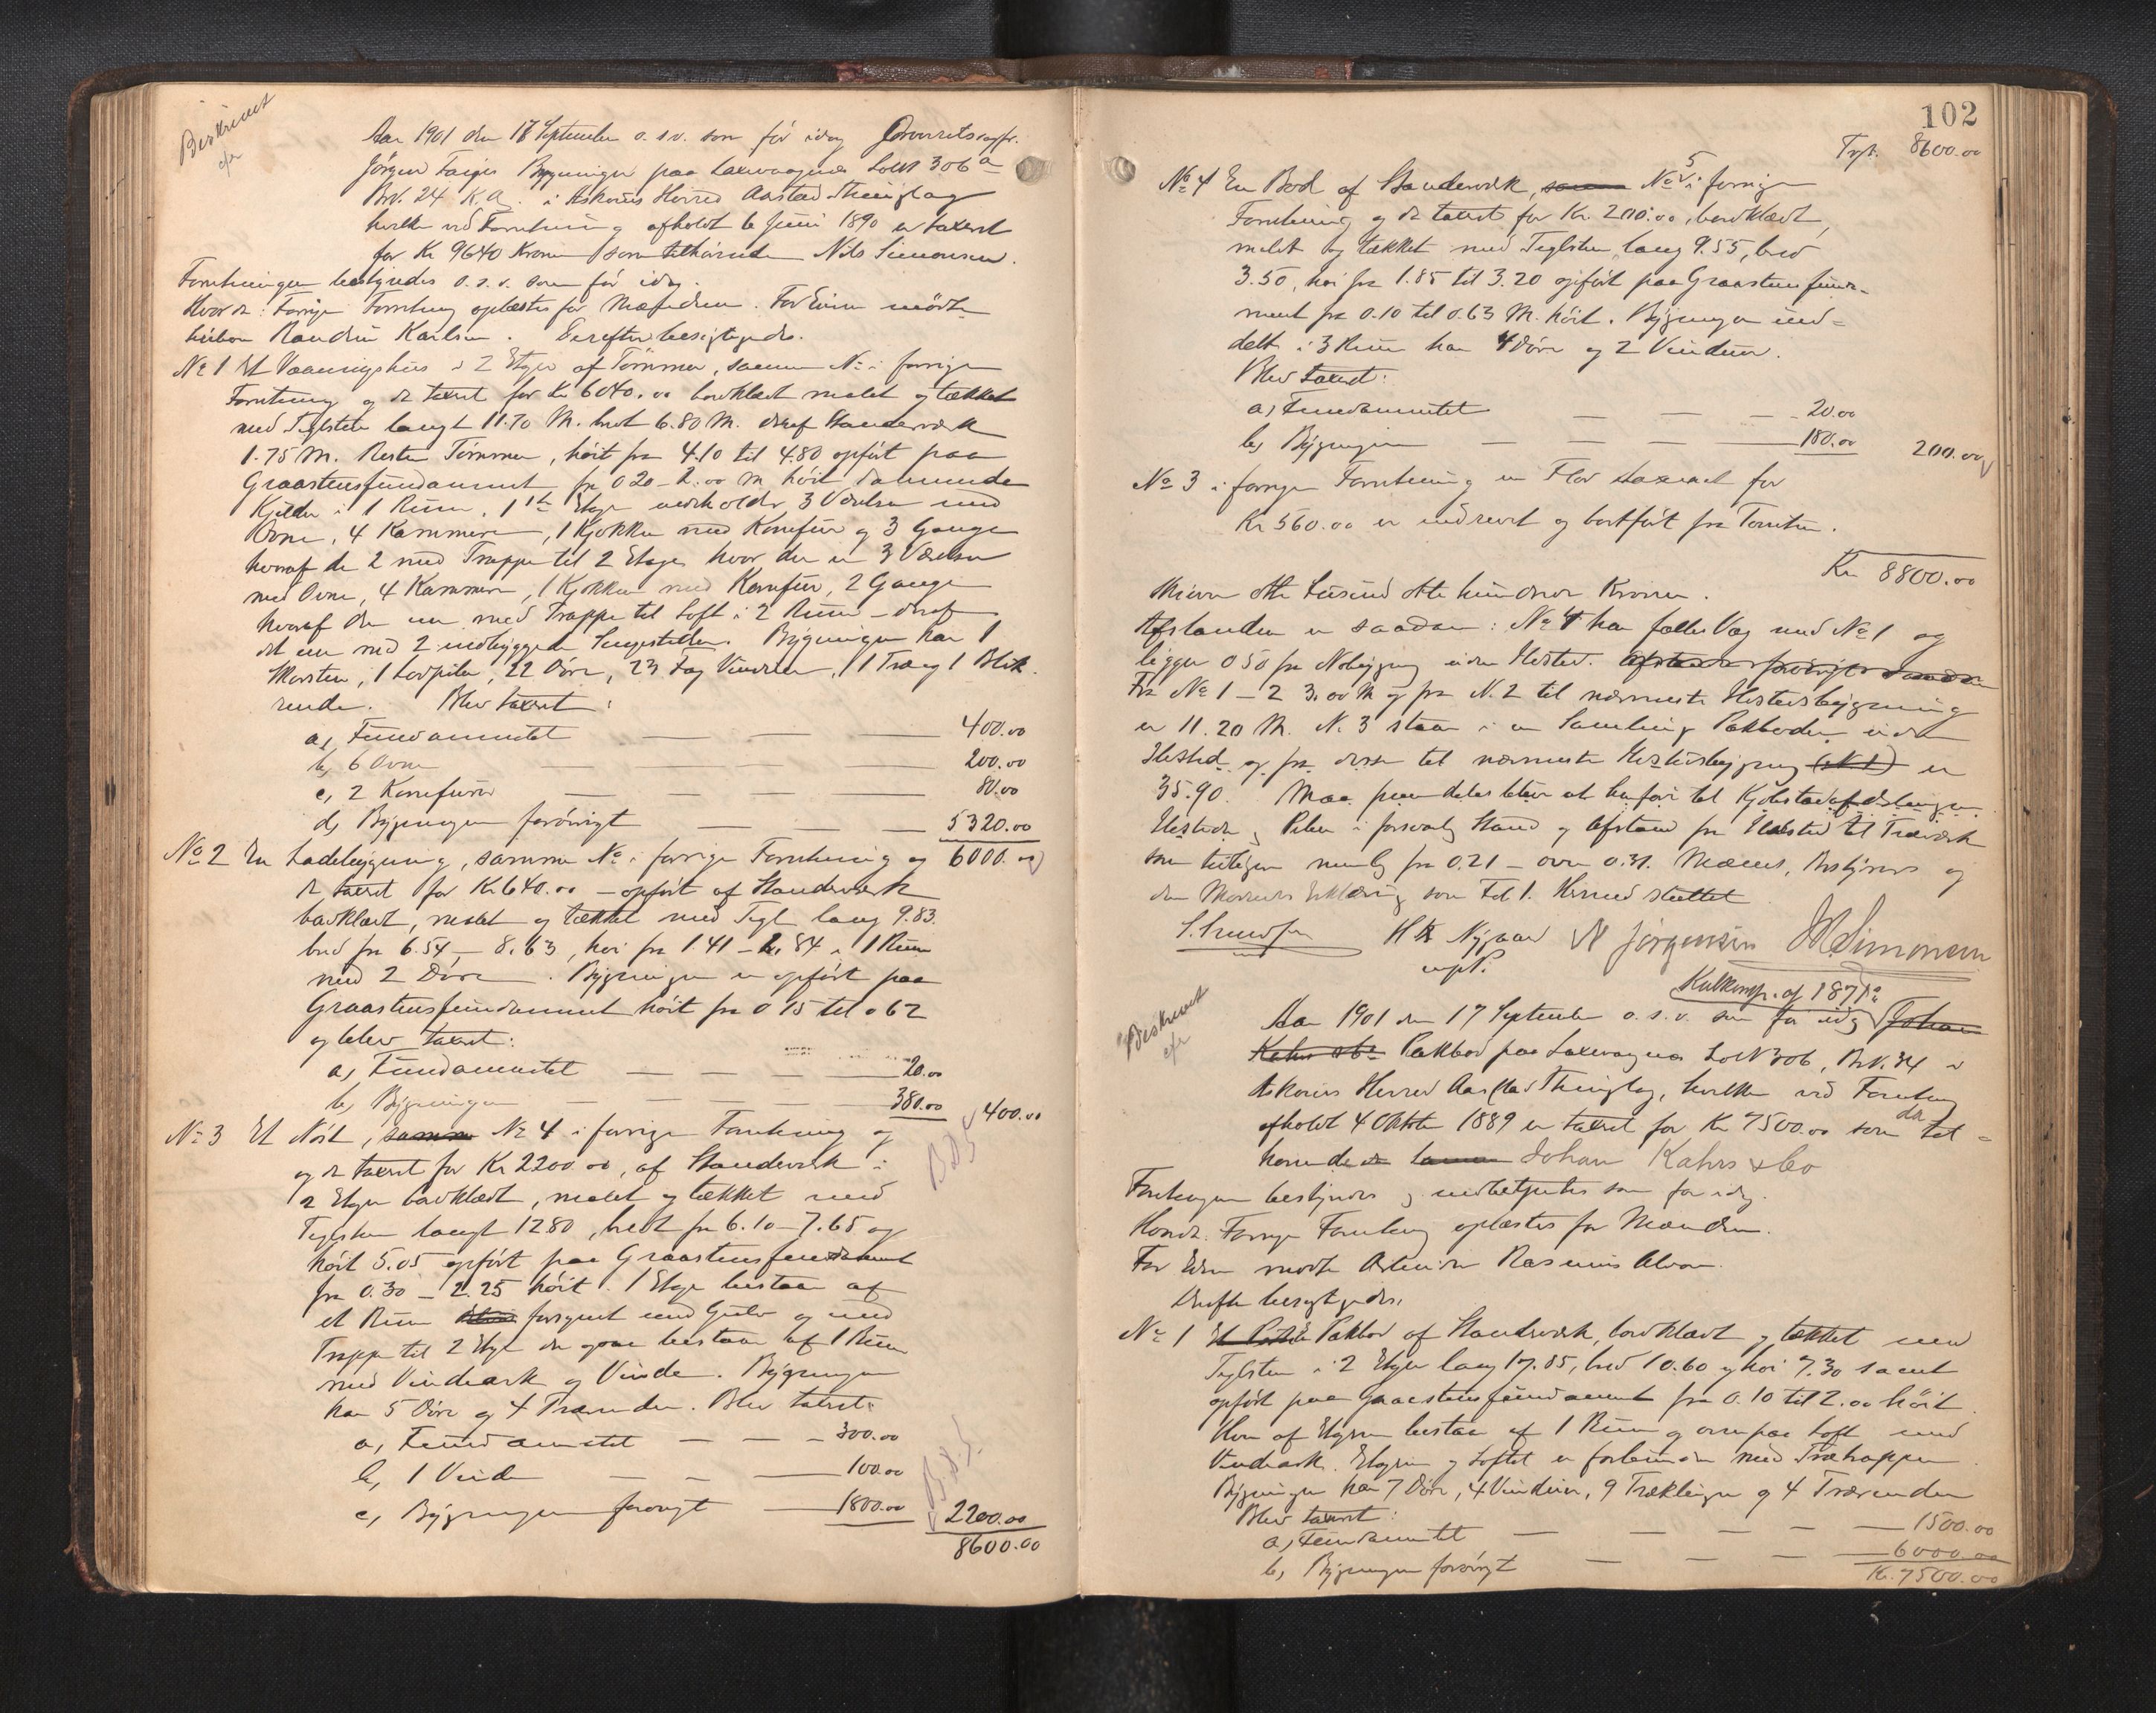 Beskrevet
Aar 1901 den 17 September o.s.v. som før idag
Jörgen Faiges Bygninger paa Laxevaagnæs Løbn 306 a
Brv. 24 i Askøens Herred Aarstad Thinglag
hvilke ved Forretning afholdt 6 Juni 1890 er taxeret
for Kr 9640 Kroner som tilhørende Nils Simonsen.
Forretningen bestyredes o.s.v. som før idag.
Hvorda: Forrige Forretning oplæstes for Mændene. For Eieren mödte
Karlsen. Derefter besigtigedes.
No 1 Et Vaaningshus i 2 Etager af Tömmer, samme No i forrige
Forretning og da taxeret for Kr 6040.00 bordklædt malet og tækket
med Teglsten langt 11.70 M. bredt 6.80 M. deraf Standerværk
1.75 M. Resten Tömmer, höit fra 4.10 til 4.80 opfört paa
Graastensfundament fra 0 20 - 2.00 m höit
Kjelder i 1 Rum. 1ste Etage indeholder 3 Værelser med
Ovne, 4 Kammere, 1 Kjökken med Komfur og 3 Gange
hvoraf de 2 med Trappe til 2 Etage hvor der er 3 Værelser
med Ovne, 4 Kammere, 1 Kjøkken med Komfur, 2 Gange
hvoraf den ene med Trappe til Loft i 2 Rum - deraf
det ene med 2 indbyggede Sengesteder. Bygningen har 1
Skorsten, 1 Ledpibe, 22 Döre, 23 Fag Vinduer, 1 Træ og 1 Blik
rende. Blev taxeret:
a, Fundamentet — — — 400.00
b, 6 Ovne — — — 200.00
c, 2 Komfurer — — — 80.00
d, Bygningen forövrigt — — — 5320.00
No 2 En Ladebygning, samme No i forrige Forretning og 6000.00
da taxeret for Kr 640.00 - opfört af Standerværk
bordklædt, malet og tækket med Tegl lang 9.83.
bred fra 6.54 - 8.63, höi fra 1.41 - 2.84 i 1 Rum
med 2 Döre. Bygningen er opfört paa
Graastensfundament höit fra 0 15 til 0 62
og blev taxeret:
a, Fundamentet — — — 20.00
b, Bygningen — — — 380.00 400.00
No 3 Et Nöst, samme No 4 i forrige Forretning og
og da taxeret for Kr 2200 00, af Standerværk i
2 Etager bordklædt, malet og tækket med
Teglsten langt 12 80, bredt fra 6.10 - 7.65 og
höit 5.05 opfört paa Graastensfundament
fra 0.30 - 2.25 höit. 1 Etage bestaar af
et Rum forsynet med Gulv og med
Trappe til 2 Etage der ogsaa bestaar af 1 Rum
med Vindeark og Vinde. Bygningen
har 5 Döre og 4 Trærender. Blev taxeret:
a, Fundamentet — — — 300.00
b, 1 Vinde — — — 100.00
c, Bygningen forövrigt — 1800.00 2200.00
8600.00
102
Trpt. 8600.00
No 4 En Bod af Standerværk, samme No 5 i forrige
Forretning og da taxeret for Kr. 200.00, bordklædt,
malet og tækket med Teglsten, lang 9.55, bred
3.50, höi fra 1.85 til 3.20 opfört paa Graastensfunda-
ment fra 0.10 til 0.63 M. höit. Bygningen ind-
delt i 3 Rum har 4 Döre og 2 Vinduer.
Blev taxeret:
a, Fundamentet — — — 20.00
b, Bygningen — — — 180.00 200.00
No 3 i forrige Forretning en Flor taxeret for
Kr 560.00 er nedrevet og bortfört fra Tomten.
Kr 8800.00
Skriver otte Tusind otte hundrede Kroner.
Afstanden er saadan: No 4 har fælles Væg med No 1 og
ligger 0 50 fra Nabobygning uden Ildsted.
Fra No 1 - 2 3.00 M og fra N. 2 til nærmeste Ildstedsbygning
er 11.20 M. N. 3 staar i en Samling Pakboder uden
Ildsted og fra disse til nærmeste Ildstedsbygning (No 1) er
35.90. Maa fremdeles blive at henføre til Kjøbstadafdelingen.
Ildsteder og Piber i forsvarlig Stand og Afstand fra Ildsted til Træværk
som tidligere nemlig fra 0.21 - over 0.31. Mændenes, Bestyrerens og
den Mødendes Erklæring som Fol 1. Hermed sluttet
H K Nygaard N Jörgensen N Simonsen
Kulkomp. af 1871
Beskrevet
Aar 1901 den 17 September o.s.v. som før idag Johan
Kahrs & Co Pakbod paa Laxevagnes LøbN 306, BrN. 34 i
Askøens Herred Aarstad Thinglag, hvilken ved Forretning
afholdt 4 Oktober 1889 er taxeret for Kr 7500.00 som da til=
hørende Johan Kahrs & Co
Forretningen bestyredes og som før idag.
Hvorda. Forrige Forretning oplæstes for Mændene.
For Eieren mødte Rasmus
Derefter besigtigedes.
No 1 Pakbod af Standerværk, bordklædt og tækket med
Teglsten i 2 Etager lang 17.85, bred 10.60 og höi 7.30 samt
opfört paa Graastensfundament fra 0.10 til 2.00 höit.
Hver af Etagerne bestaar af 1 Rum og ovenpaa Loft med
Vindeark. Etagerne og Loftet er forbundne med Trætrapper.
Bygningen har 7 Döre, 4 Vinduer, 9 Træklinger og 4 Trærender
Blev taxeret:
a, Fundamentet — — — 1500.00
b, Bygningen forövrigt — — — 6000.00
Kr. 7500.00